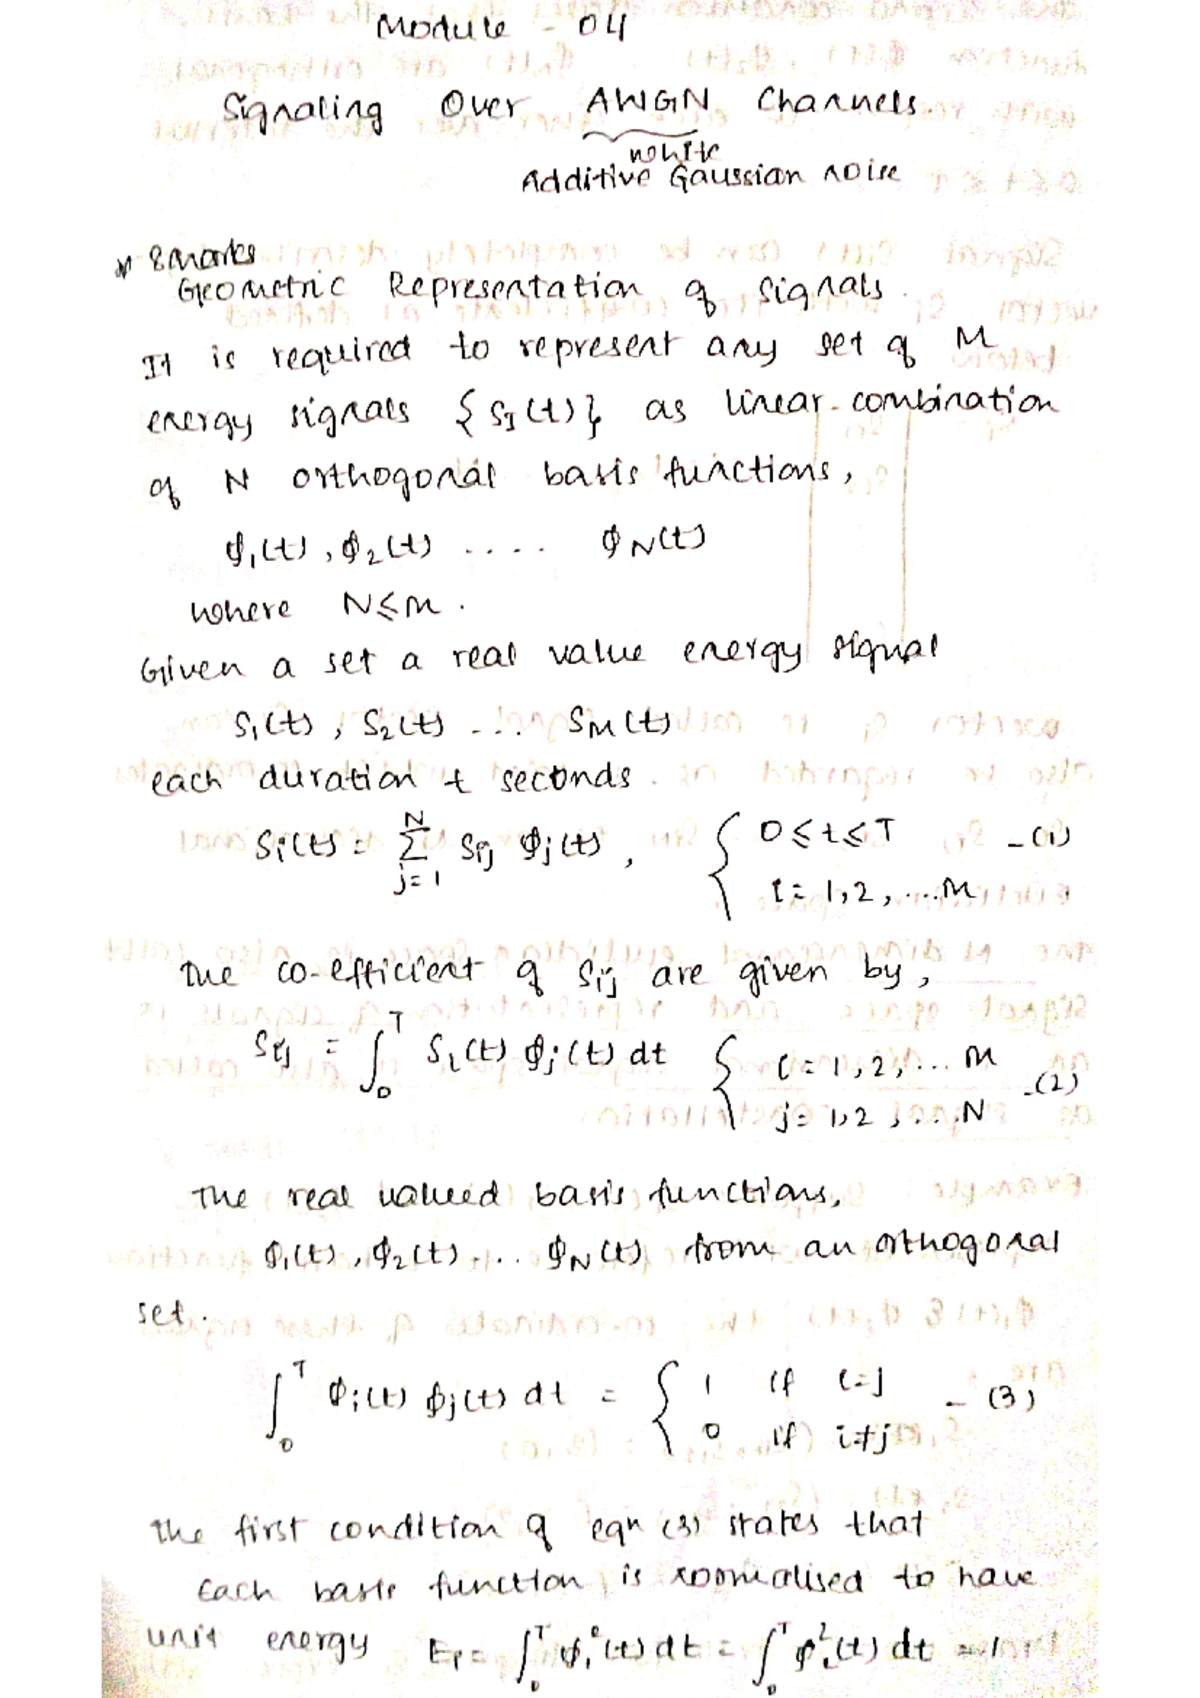 Module - 04
Signaling Over AWGN Channels.
white
Additive Gaussian noise
* 8marks
Geometric Representation of signals.
It is required to represent any set of M
energy signals {SI(t)} as linear combination
of N orthogonal basis functions,
ϕ1(t), ϕ2(t) .... ϕN(t)
where N≤M.
Given a set a real value energy signal
S1(t), S2(t) .... SM(t)
each duration t seconds.
Si(t) = ∑_{j=1}^{N} Sij ϕj(t), { 0≤t≤T - (1)
i = 1,2, ...M
The co-efficient of Sij are given by,
Sij = ∫_0^T Si(t) ϕj(t) dt { i = 1,2,... M
j = 1,2,...N -(2)
The real valued basis functions,
ϕ1(t), ϕ2(t)... ϕN(t) from an orthogonal
set.
∫_0^T ϕi(t) ϕj(t) dt = { 1 if i=j - (3)
0 if i≠j
The first condition of eqn (3) states that
Each basis function is normalised to have
unit energy Ei = ∫_0^T ϕi²(t) dt = ∫_0^T ϕi²(t) dt = 1